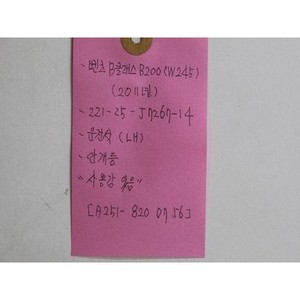 - 벤츠 B클래스 B200 (W245)
(2011년)
- 221-25-J7267-14
- 운전석 (LH)
- 안개등
- "사용감 있음"
[A251-820 07 56]